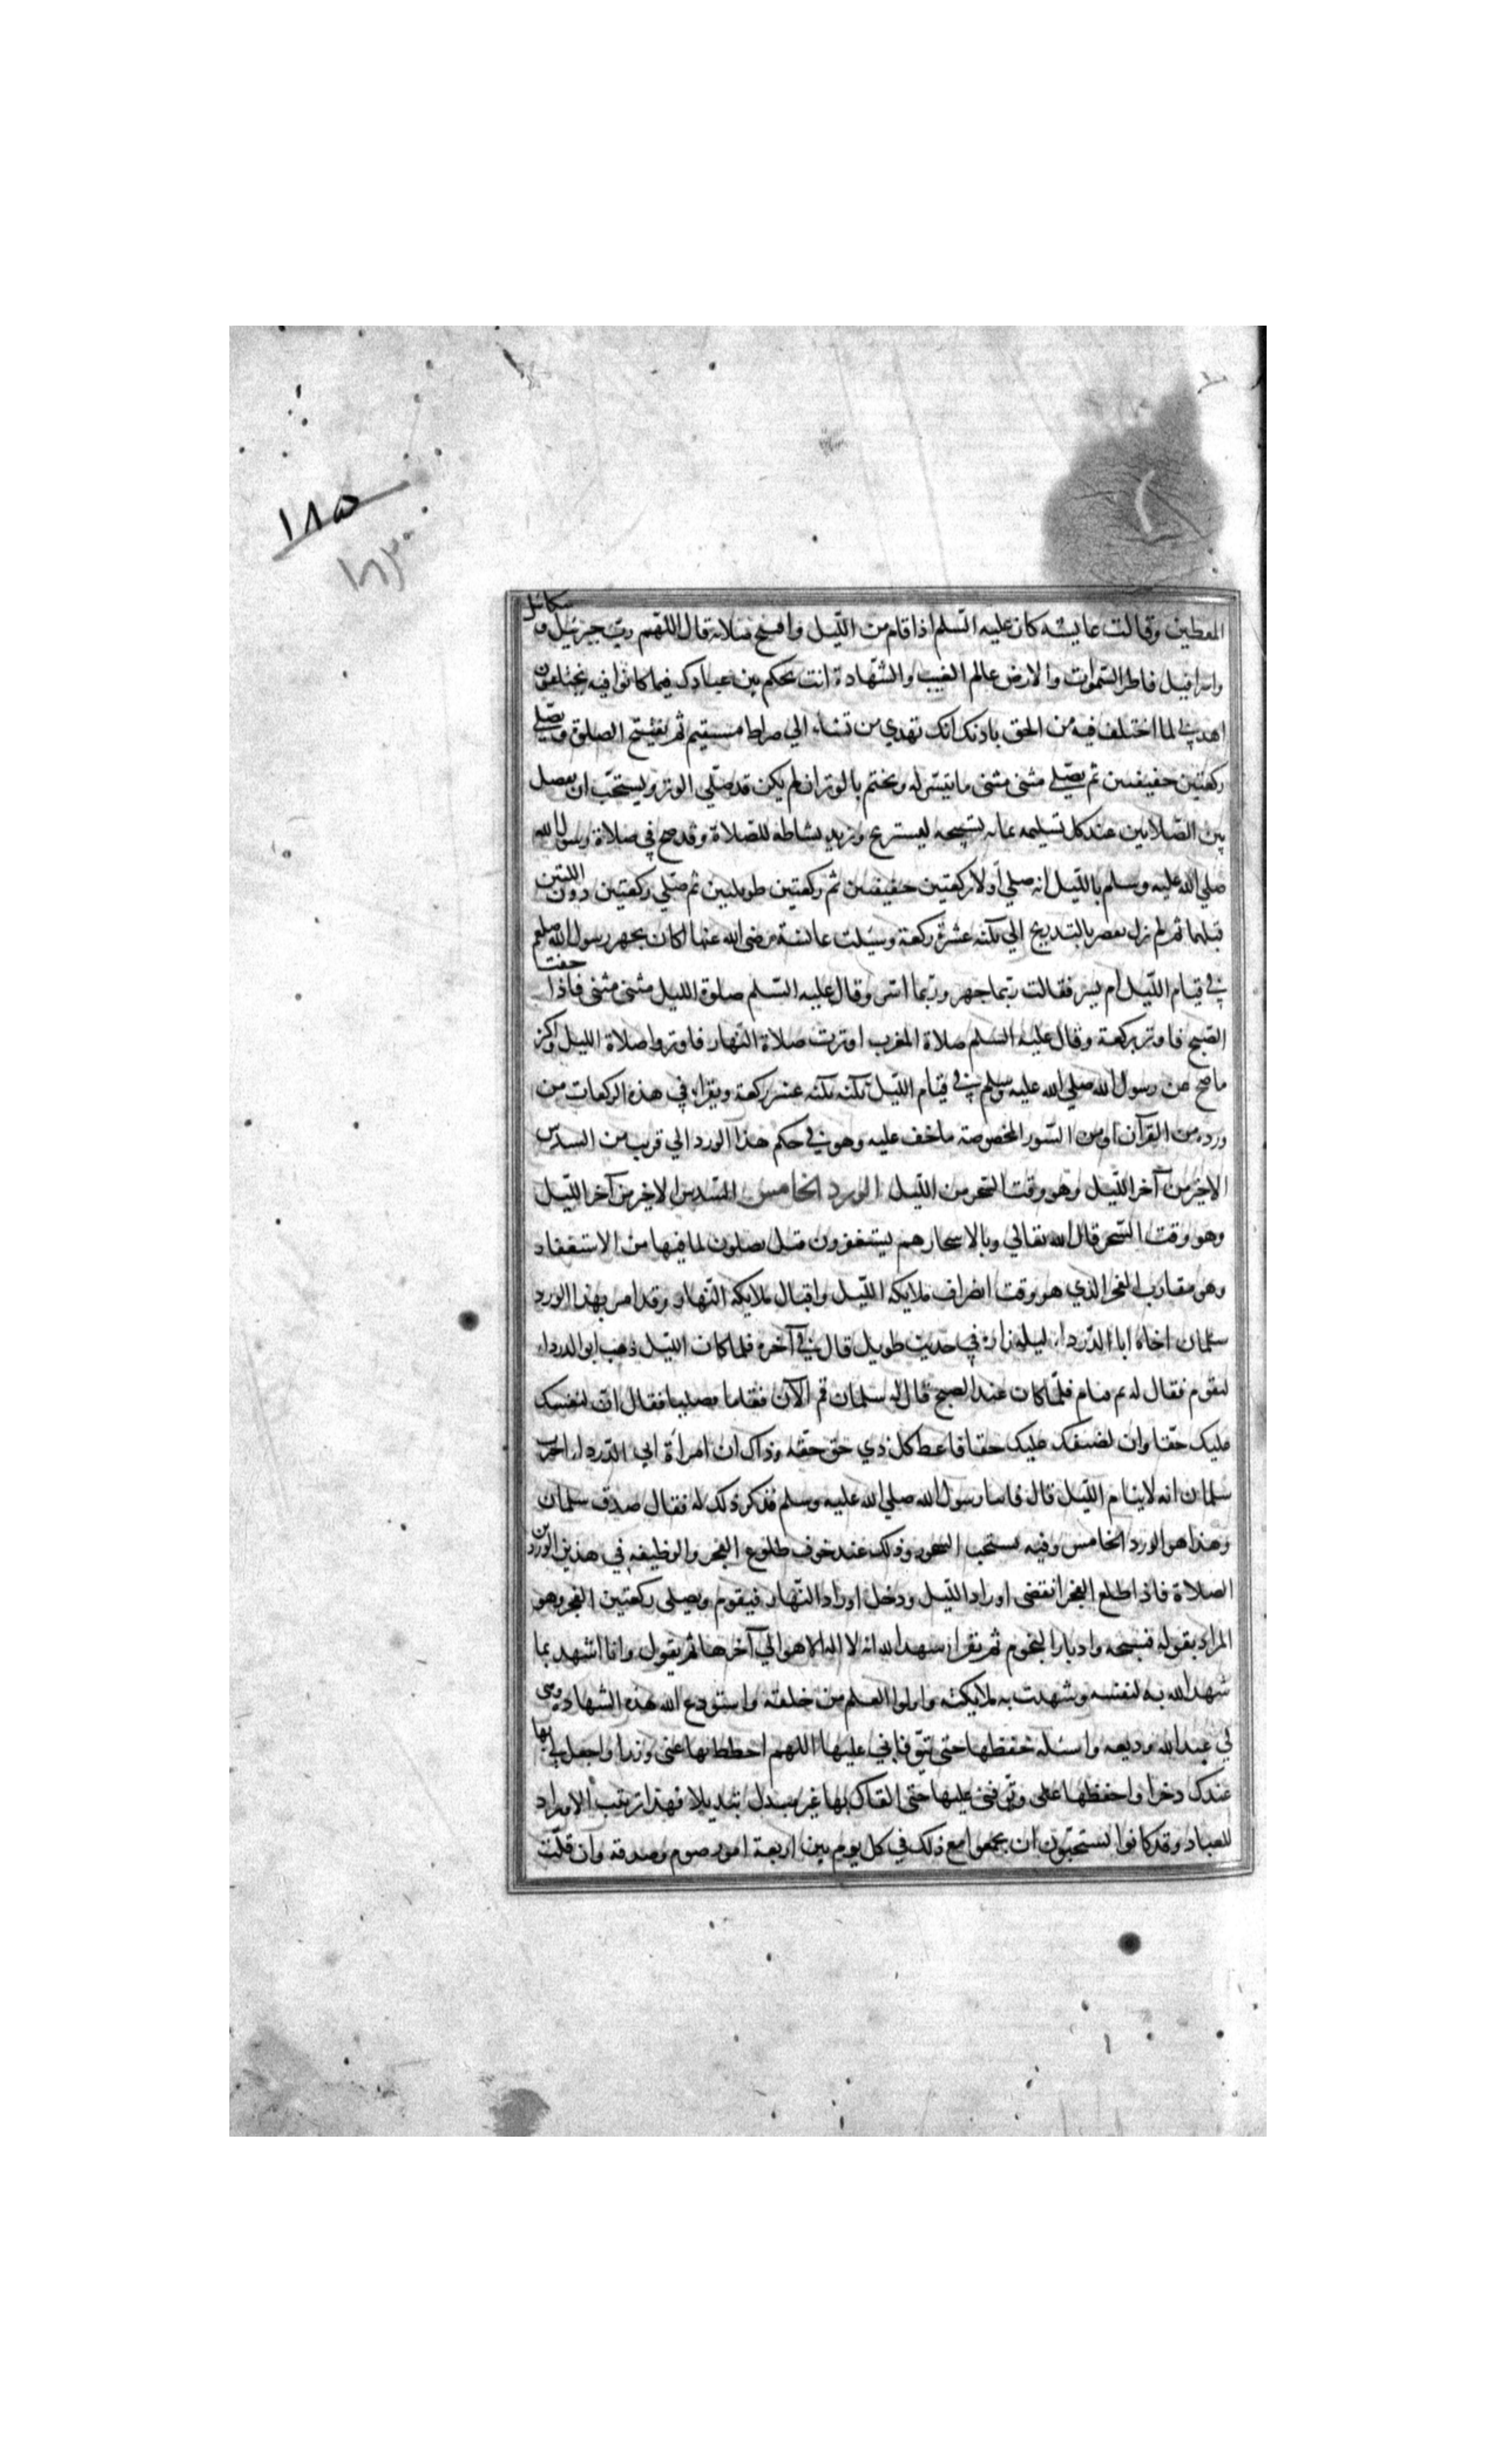 ١٨٥
المعطين وقالت عايشه كان عليه السّلم اذا قام من اللّيل وافتتح صلاته قال اللهّم ربّ جبرئيل و ميكائيل
واسرافيل فاطر السّموات والارض عالم الغيب والشّهادة انت تحكم بين عبادك فيما كانوا فيه يختلفون
اهدني لما اختلف فيه من الحق باذنك انك تهدي من تشاء الي صراط مستقيم ثم يفتتح الصلوة ويصّلي
ركعتين خفيفتين ثم يصّلي مثنى مثنى ما تيسّر له ويختم بالوتر ان لم يكن قد صلّي الوتر ويستحّب ان يفصل
بين الصّلاتين عند كل تسليمه بمايه تسبيحه ليستريح ويزيد نشاطه للصّلاة وقد صح في صلاة رسول الله
صلي الله عليه وسلم باللّيل انه صلي اولا ركعتين خفيفتين ثم ركعتين طويلتين ثم صلّي ركعتين دون اللتين
قبلهما ثم لم يزل يقصر بالتدريج الي ثلثه عشرة ركعة وسئلت عائشة رضى الله عنها اكان يجهر رسول الله صلعم
في قيام اللّيل ام يسر فقالت ربّما جهر وربّما اسّر وقال عليه السّلم صلوة الليل مثنى مثنى فاذا خفت
الصّبح فاوتر بركعة وقال عليه السّلم صلاة المغرب اوترت صلاة النّهار فاوتروا صلاة الليل واكثر
ما صّح عن رسول الله صلي الله عليه وسلم في قيام اللّيل ثلثه ثلثه عشر ركعة ويقراء في هذه الركعات من
ورده من القرآن او من السّور المخصوصة ما خف عليه وهو في حكم هذا الورد الي قرب من السدس
الاخير من آخر اللّيل وهو وقت السّحر من اللّيل الورد الخامس السّدس الاخير من آخر اللّيل
وهو وقت السّحر قال الله تعالي وبالاسحار هم يستغفرون قيل يصلون لما فيها من الاستغفار
وهو مقارب الفجر الذي هو وقت انصراف ملايكه اللّيل واقبال ملايكه النّهار وقد امر بهذا الورد
سلمان اخاه ابا الدّرداء ليله زاره في حديث طويل قال في آخره فلما كان اللّيل ذهب ابو الدرداء
ليقوم فقال له نم فنام فلمّا كان عند الصبح قال له سلمان قم الآن فقاما فصليا فقال انّ لنفسك
عليك حقّا وان لضيفك عليك حقا فاعط كل ذي حق حقّه وذاك ان امرأة ابي الدّرداء اخبرت
سلمان انه لا ينام اللّيل قال فاتيا رسول الله صلي الله عليه وسلم فذكر ذلك له فقال صدق سلمان
وهذا هو الورد الخامس وفيه يستحب السّحور وذلك عند خوف طلوع الفجر والوظيفه في هذين الوردين
الصلاة فاذا طلع الفجر انقضى اوراد اللّيل ودخل اوراد النّهار فيقوم ويصلى ركعتين الفجر وهو
المراد بقوله فسبحه وادبار النجوم ثم يقرا شهد الله انه لا اله الا هو الي آخرها ثم يقول وانا اشهد بما
شهد الله به لنفسه وشهدت به ملايكته واولوا العلم من خلقه واستودع الله هذه الشهاده وهي
لي عند الله وديعه واسئله حفظها حتى يتوفاني عليها اللهم احطط بها عنى وزرا واجعل لي بها
عندك ذخرا واحفظها على وتوفنى عليها حتى القاك بها غير مبدل تبديلا فهذا ترتيب الاوراد
للعباد وقد كانوا يستحبّون ان يجمعوا مع ذلك في كل يوم بين اربعة امور صوم وصدقة وان قلّت